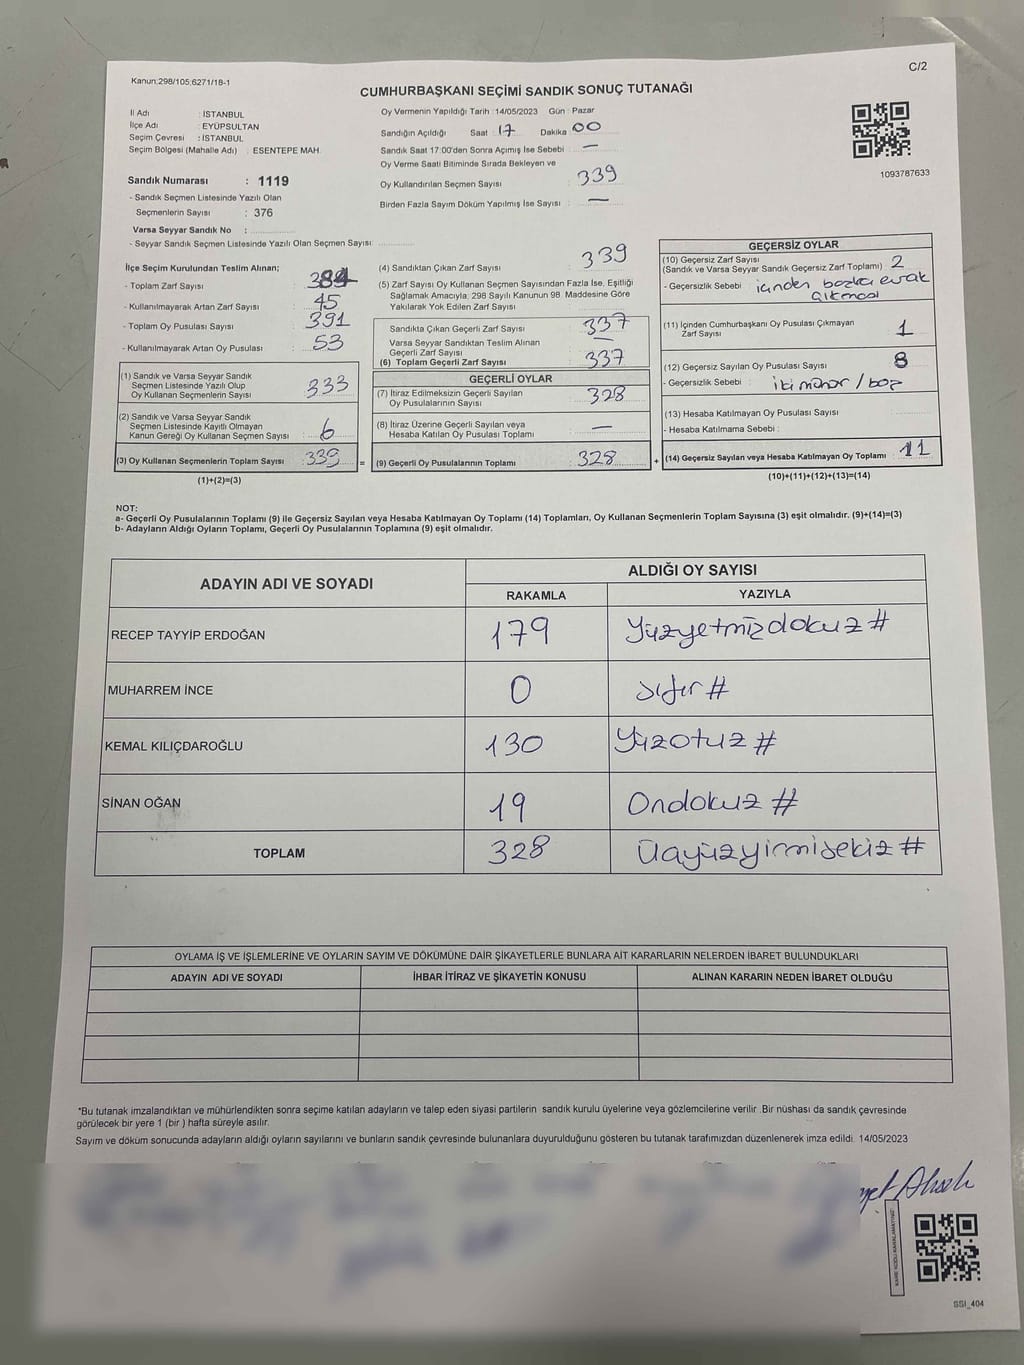 Kanun;298/105;6271/18-1
C/2
CUMHURBAŞKANI SEÇİMİ SANDIK SONUÇ TUTANAĞI
İl Adı : İSTANBUL
İlçe Adı : EYÜPSULTAN
Seçim Çevresi : İSTANBUL
Seçim Bölgesi (Mahalle Adı) : ESENTEPE MAH.
Sandık Numarası : 1119
- Sandık Seçmen Listesinde Yazılı Olan
Seçmenlerin Sayısı : 376
Varsa Seyyar Sandık No :
- Seyyar Sandık Seçmen Listesinde Yazılı Olan Seçmen Sayısı:
Oy Vermenin Yapıldığı Tarih : 14/05/2023 Gün : Pazar
Sandığın Açıldığı Saat : 17 Dakika 00
Sandık Saat 17:00'den Sonra Açımış İse Sebebi : —
Oy Verme Saati Bitiminde Sırada Bekleyen ve
Oy Kullandırılan Seçmen Sayısı : 339
Birden Fazla Sayım Döküm Yapılmış İse Sayısı : —
1093787633
İlçe Seçim Kurulundan Teslim Alınan;
- Toplam Zarf Sayısı :
- Kullanılmayarak Artan Zarf Sayısı : 45
- Toplam Oy Pusulası Sayısı : 391
- Kullanılmayarak Artan Oy Pusulası : 53
(1) Sandık ve Varsa Seyyar Sandık
Seçmen Listesinde Yazılı Olup
Oy Kullanan Seçmenlerin Sayısı : 333
(2) Sandık ve Varsa Seyyar Sandık
Seçmen Listesinde Kayıtlı Olmayan
Kanun Gereği Oy Kullanan Seçmen Sayısı : 6
(3) Oy Kullanan Seçmenlerin Toplam Sayısı : 339 =
(1)+(2)=(3)
(4) Sandıktan Çıkan Zarf Sayısı : 339
(5) Zarf Sayısı Oy Kullanan Seçmen Sayısından Fazla İse, Eşitliği
Sağlamak Amacıyla; 298 Sayılı Kanunun 98. Maddesine Göre
Yakılarak Yok Edilen Zarf Sayısı :
Sandıkta Çıkan Geçerli Zarf Sayısı : 337
Varsa Seyyar Sandıktan Teslim Alınan
Geçerli Zarf Sayısı : —
(6) Toplam Geçerli Zarf Sayısı : 337
GEÇERLİ OYLAR
(7) İtiraz Edilmeksizin Geçerli Sayılan
Oy Pusulalarının Sayısı : 328
(8) İtiraz Üzerine Geçerli Sayılan veya
Hesaba Katılan Oy Pusulası Toplamı : —
(9) Geçerli Oy Pusulalarının Toplamı : 328 +
GEÇERSİZ OYLAR
(10) Geçersiz Zarf Sayısı
(Sandık ve Varsa Seyyar Sandık Geçersiz Zarf Toplamı) : 2
- Geçersizlik Sebebi : içinden başka evrak
çıkması
(11) İçinden Cumhurbaşkanı Oy Pusulası Çıkmayan
Zarf Sayısı : 1
(12) Geçersiz Sayılan Oy Pusulası Sayısı : 8
- Geçersizlik Sebebi : iki mühür / boş
(13) Hesaba Katılmayan Oy Pusulası Sayısı :
- Hesaba Katılmama Sebebi :
(14) Geçersiz Sayılan veya Hesaba Katılmayan Oy Toplamı : 11
(10)+(11)+(12)+(13)=(14)
NOT:
a- Geçerli Oy Pusulalarının Toplamı (9) ile Geçersiz Sayılan veya Hesaba Katılmayan Oy Toplamı (14) Toplamları, Oy Kullanan Seçmenlerin Toplam Sayısına (3) eşit olmalıdır. (9)+(14)=(3)
b- Adayların Aldığı Oyların Toplamı, Geçerli Oy Pusulalarının Toplamına (9) eşit olmalıdır.
ADAYIN ADI VE SOYADI
ALDIĞI OY SAYISI
RAKAMLA YAZIYLA
RECEP TAYYİP ERDOĞAN 179 Yüzyetmişdokuz #
MUHARREM İNCE 0 sıfır #
KEMAL KILIÇDAROĞLU 130 Yüzotuz #
SİNAN OĞAN 19 Ondokuz #
TOPLAM 328 Üçyüzyirmisekiz #
OYLAMA İŞ VE İŞLEMLERİNE VE OYLARIN SAYIM VE DÖKÜMÜNE DAİR ŞİKAYETLERLE BUNLARA AİT KARARLARIN NELERDEN İBARET BULUNDUKLARI
ADAYIN ADI VE SOYADI İHBAR İTİRAZ VE ŞİKAYETİN KONUSU ALINAN KARARIN NEDEN İBARET OLDUĞU
*Bu tutanak imzalandıktan ve mühürlendikten sonra seçime katılan adayların ve talep eden siyasi partilerin sandık kurulu üyelerine veya gözlemcilerine verilir .Bir nüshası da sandık çevresinde
görülecek bir yere 1 (bir ) hafta süreyle asılır.
Sayım ve döküm sonucunda adayların aldığı oyların sayılarını ve bunların sandık çevresinde bulunanlara duyurulduğunu gösteren bu tutanak tarafımızdan düzenlenerek imza edildi. 14/05/2023
SSI_404